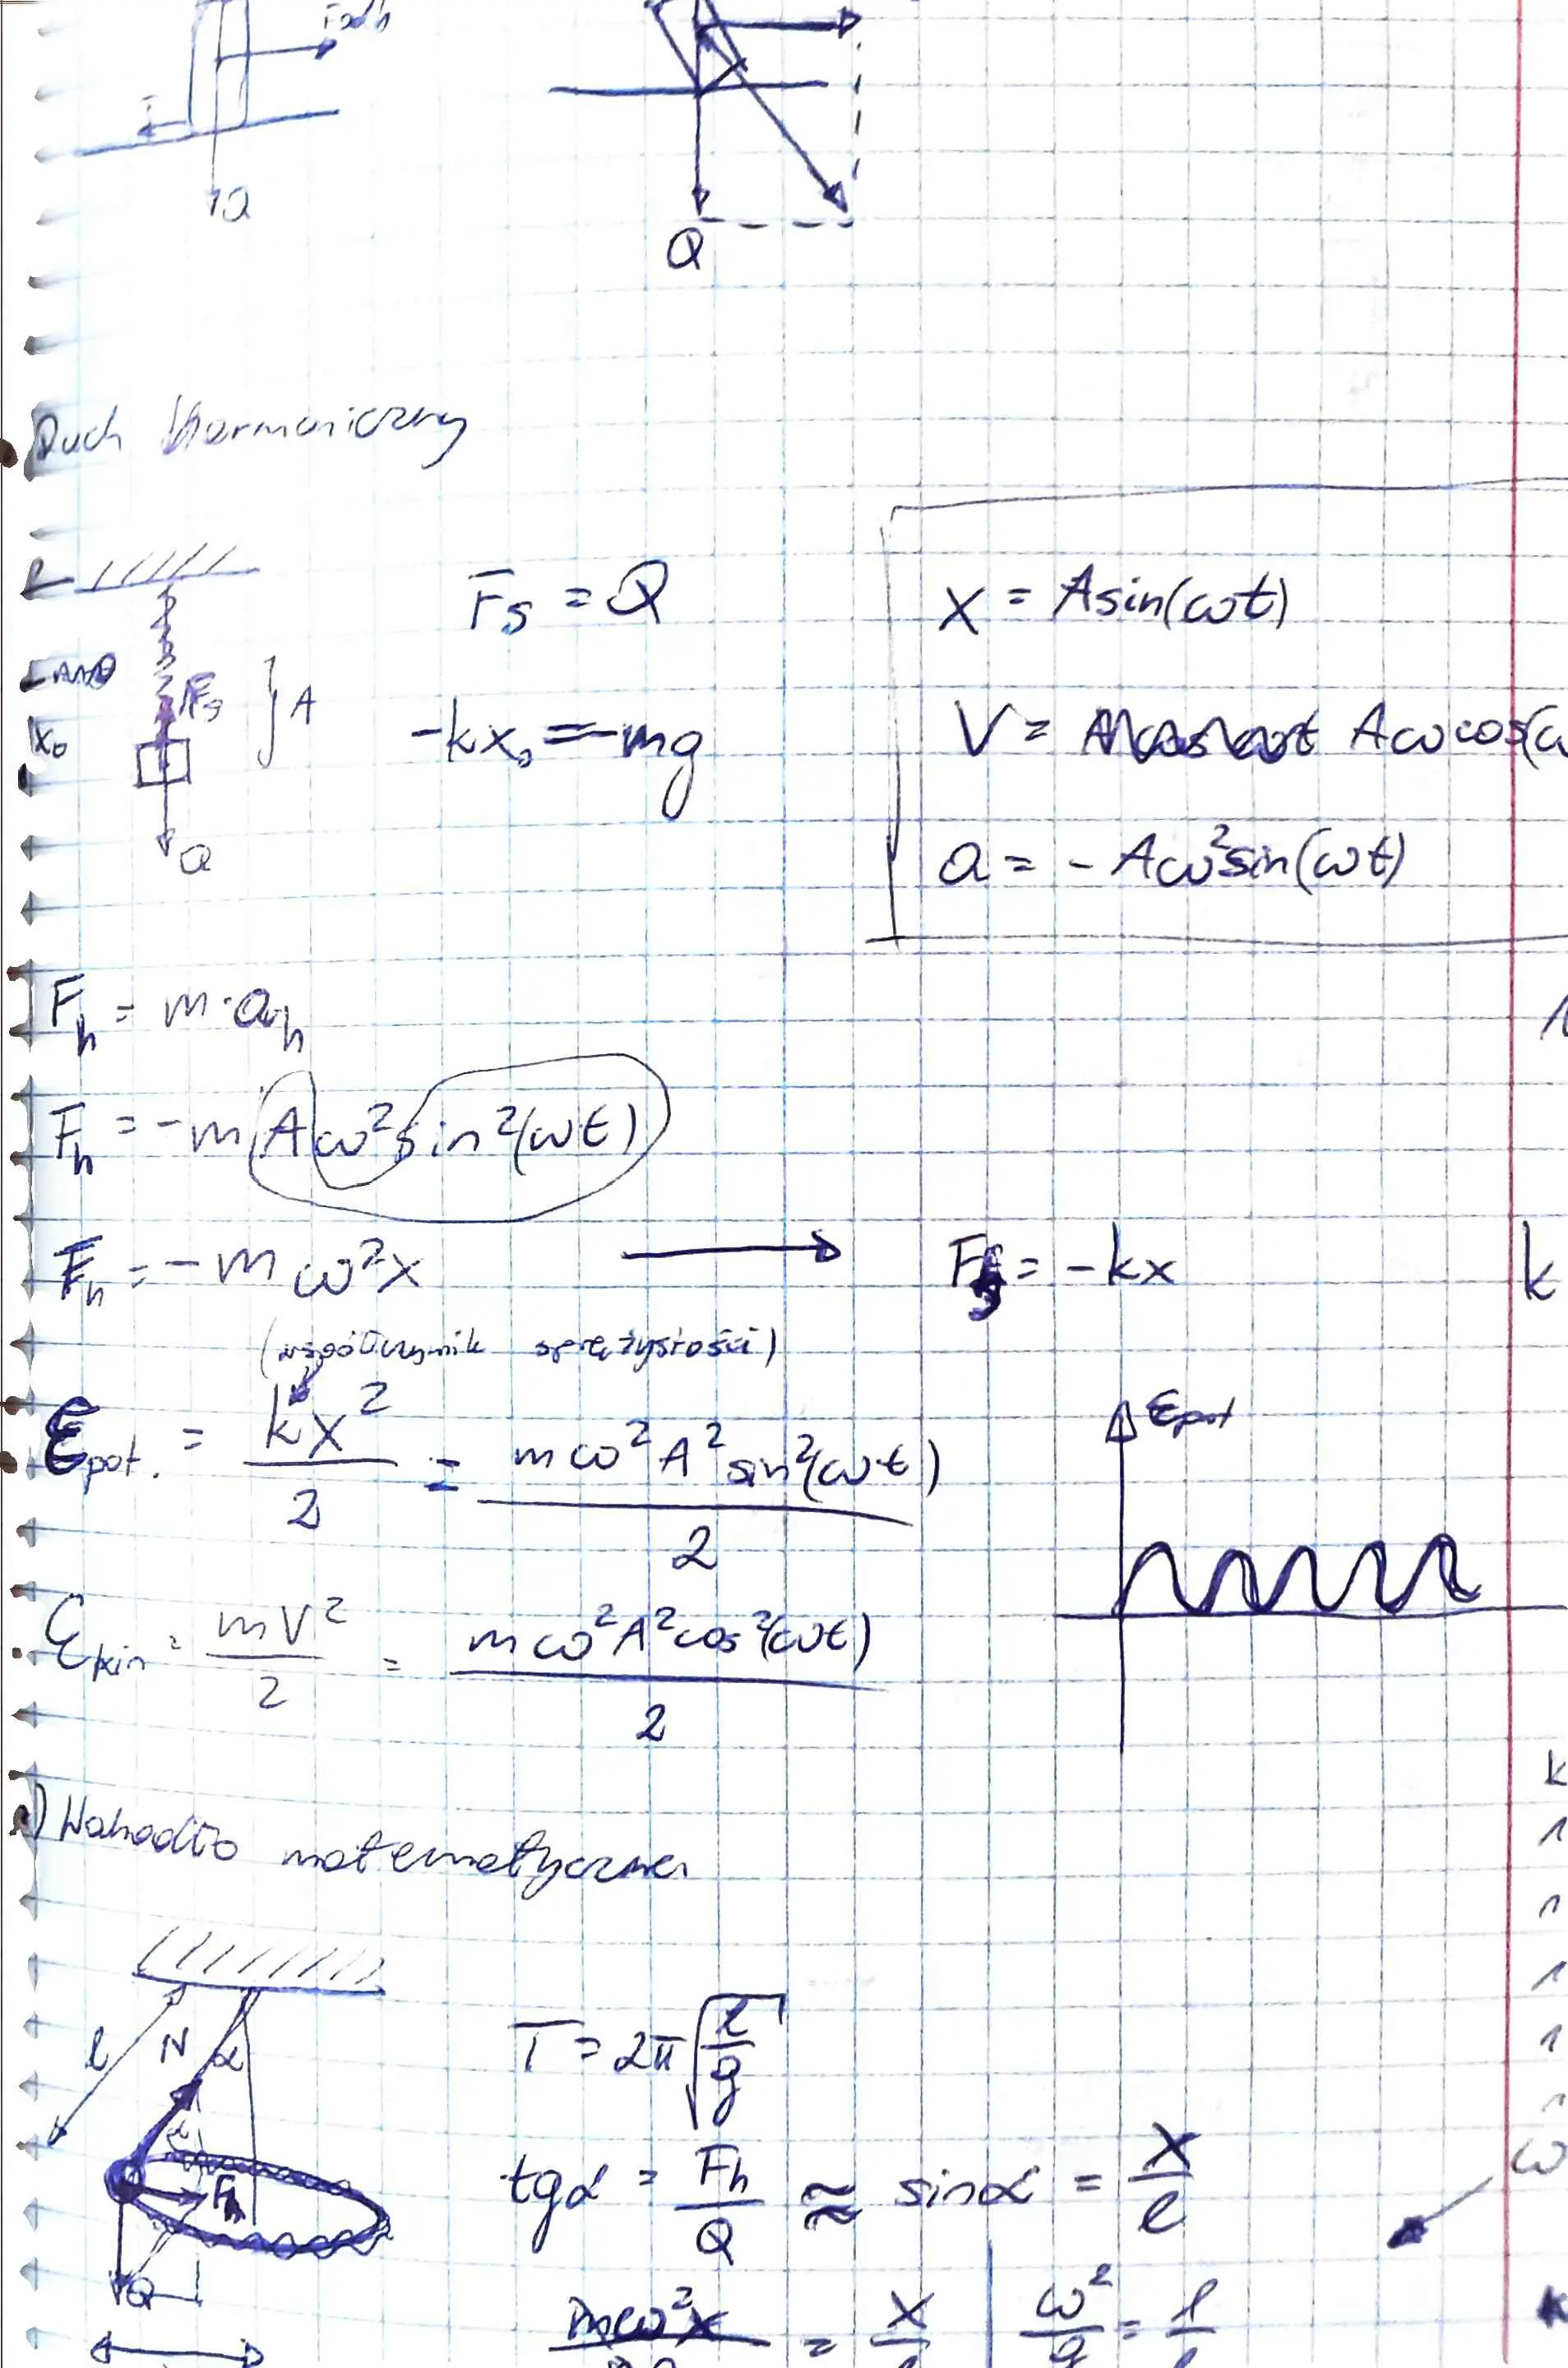 Q
Q
Ruch Harmoniczny
Fs = Q
x = Asin(ωt)
Fs
A
x₀
-kx₀ = -mg
V = Aωcos(ω
Q
a = -Aω²sin(ωt)
Fh = m·ah
Fh = -mAω²sin²(ωt)
Fh = -mω²x → Fs = -kx
k
(współczynnik sprężystości)
Epot. = kx²/2 = mω²A²sin²(ωt)/2
Epot
Ekin = mV²/2 = mω²A²cos²(ωt)/2
k
1
Wahadło matematyczne
1
l N α
T = 2π√(l/g)
1
ω
tgα = Fh/Q ≈ sinα = x/l
Fh
Q
mω²x = x | ω²/g = 1
k